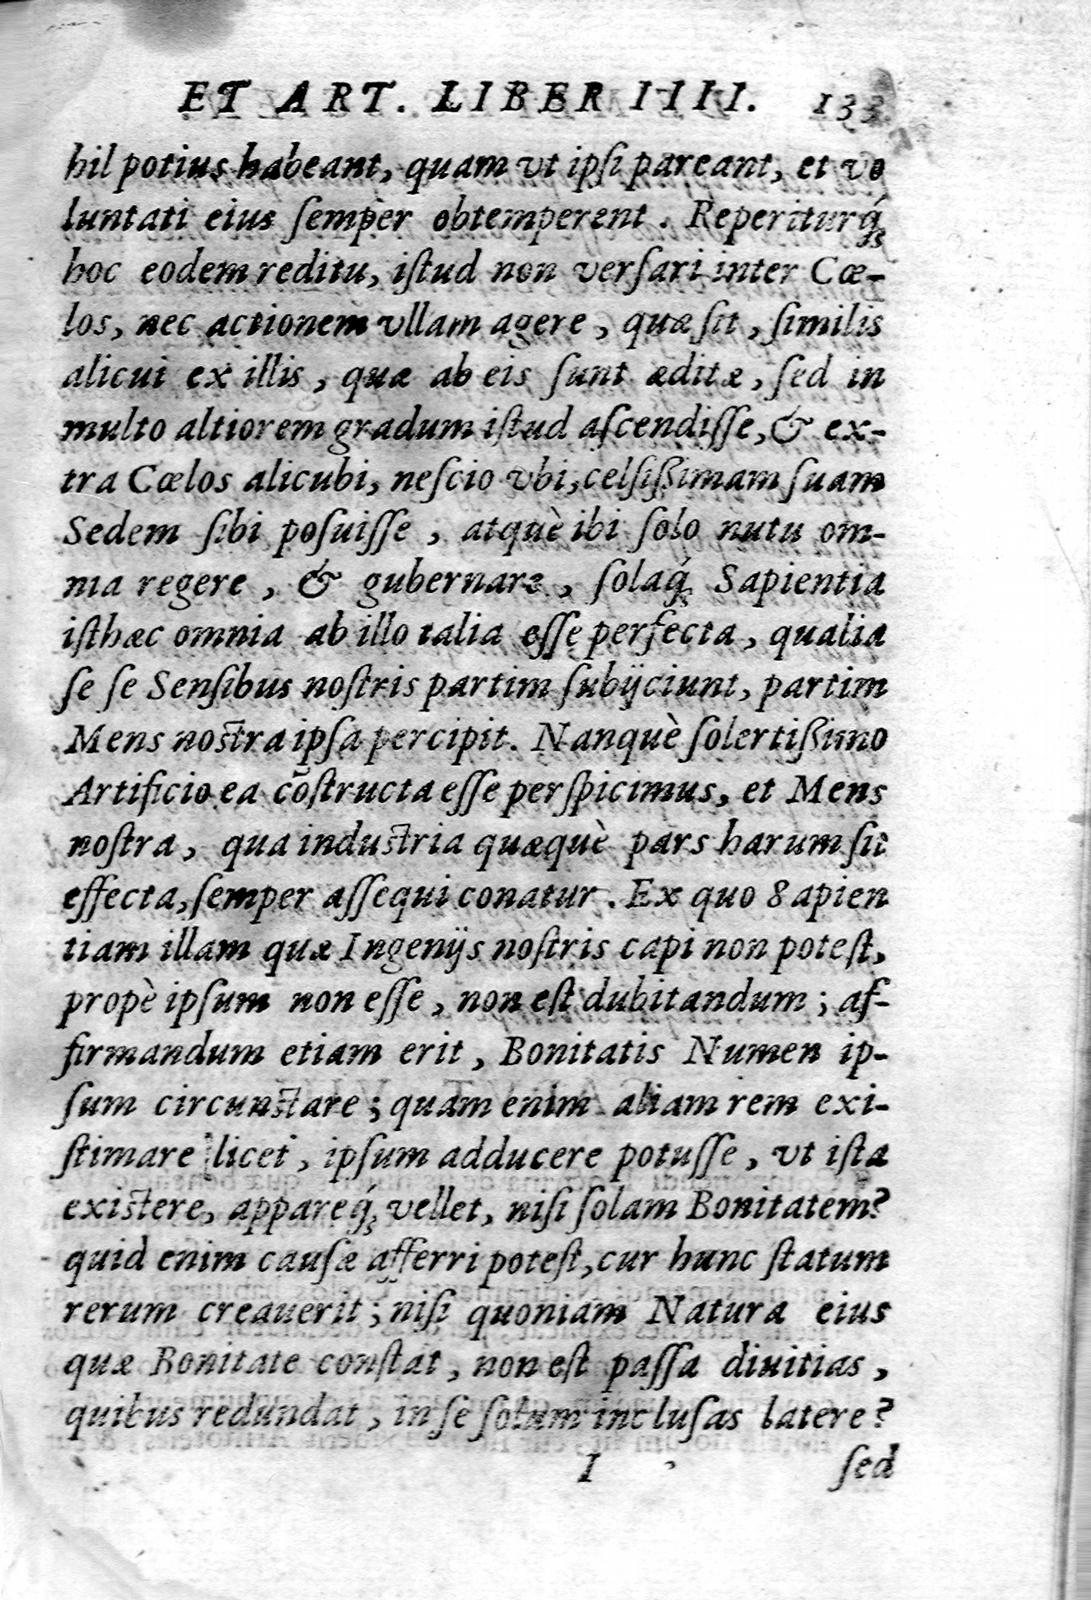 ET ART. LIBER IIII. 133
hil potius habeant, quam vt ipſi pareant, et vo
luntati eius ſemper obtemperent. Reperiturq́;
hoc eodem reditu, iſtud non verſari inter Cœ-
los, nec actionem vllam agere, quæ ſit, ſimilis
alicui ex illis, quæ ab eis ſunt æditæ, ſed in
multo altiorem gradum iſtud aſcendiſſe, & ex-
tra Cœlos alicubi, neſcio vbi, celſißimam ſuam
Sedem ſibi poſuiſſe, atquè ibi ſolo nutu om-
nia regere, & gubernare, ſolaq́; Sapientia
iſthæc omnia ab illo talia eſſe perfecta, qualia
ſe ſe Senſibus noſtris partim ſubijciunt, partim
Mens noſtra ipſa percipit. Nanquè ſolertißimo
Artificio ea cōſtructa eſſe perſpicimus, et Mens
noſtra, qua induſtria quæquè pars harum ſit
effecta, ſemper aſſequi conatur. Ex quo Sapien
tiam illam quæ Ingenijs noſtris capi non poteſt,
propè ipſum non eſſe, non eſt dubitandum; af-
firmandum etiam erit, Bonitatis Numen ip-
ſum circunſtare; quam enim aliam rem exi-
ſtimare licet, ipſum adducere potuſſe, vt iſta
exiſtere, appareq́; vellet, niſi ſolam Bonitatem?
quid enim cauſæ afferri poteſt, cur hunc ſtatum
rerum creauerit; niſi quoniam Natura eius
quæ Bonitate conſtat, non eſt paſſa diuitias,
quibus redundat, in ſe ſolum incluſas latere?
I ſed